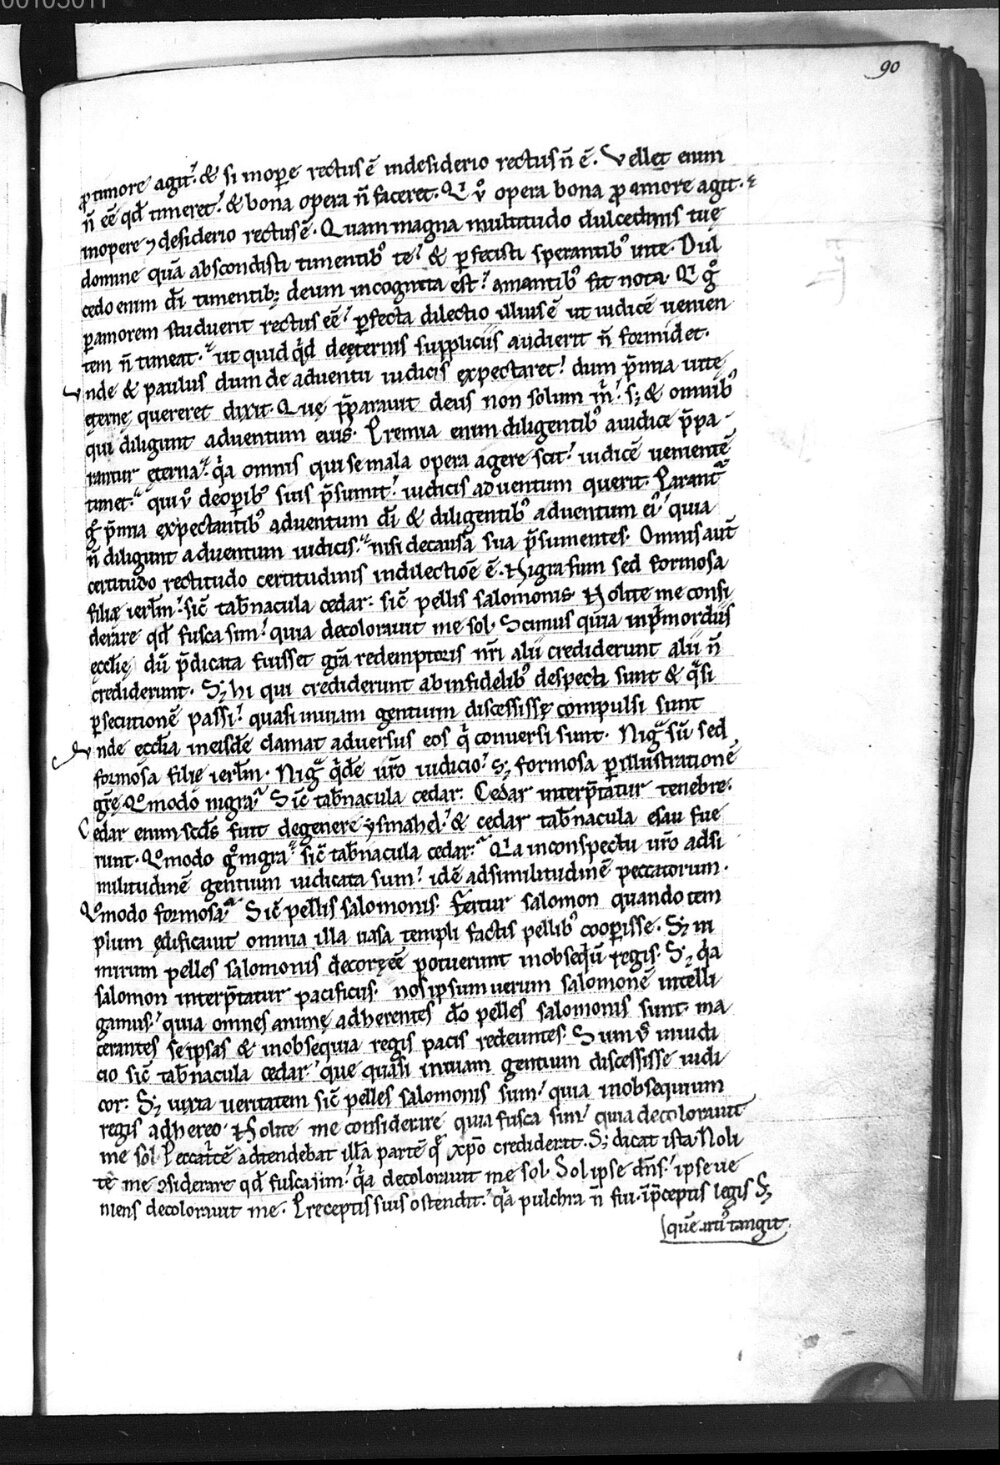 00105011
90
ꝓ timore agit. & si inoꝑe rectus ē indesiderio rectus n̄ ē. Vellet enim
n̄ eē qd̄ timeret. & bona opera n̄ faceret. Qi v̊ opera bona ꝓ amore agit. &
inopere ⁊ desiderio rectus ē. Quam magna multitudo dulcedinis tuę
domine quā abscondisti timentibꝰ te. & ꝑfecisti sperantibꝰ inte. Dul
cedo enim dī timentibꝫ deum incognita est. amantibꝰ fit nota. Qi gͦ
ꝑ amorem studuerit rectus eē. ꝑfecta dilectio illius ē ut iudicē uenien
tem n̄ timeat. ut quid qͥd deęternis suppliciis audierit n̄ formidet.
Vnde & paulus dum de aduentu iudicis expectaret. dum p̄mia uite
ęterne quereret dixit. Quę p̄parauit deus non solum m̄. sꝫ & omnibꝰ
qui diligunt aduentum eius. Premia enim diligentibꝰ aiudice p̄pa
rantur ęterna. qͥa omnis qui se mala opera agere scit. iudicē uenientē
timet. qui v̊ deoꝑibꝰ suis p̄sumit. iudicis aduentum querit. Parantͬ
gͦ p̄mia expectantibꝰ aduentum dī & diligentibꝰ aduentum eiꝰ. quia
n̄ diligunt aduentum iudicis. nisi decausa sua p̄sumentes. Omnis aut̄
certitudo rectitudo certitudinis indilectiōe ē. Nigra sum sed formosa
filię ierl̄m. sic̄ tab̄nacula cedar. sic̄ pellis salomonis. Nolite me consi
derare qd̄ fusca sim. quia decolorauit me sol. Scimus quia inpͥmordiis
ęccl̄ię dū p̄dicata fuisset gr̄a redemptoris nr̄i alii crediderunt alii n̄
crediderunt. Sꝫ hi qui crediderunt abinfidelibꝰ despecti sunt & qͣsi
ꝑsecutionē passi. quasi inuiam gentium discessisse compulsi sunt
Vnde eccl̄ia ineisdē clamat aduersus eos qͥ conuersi sunt. Nigͣ sū sed
formosa filię ierl̄m. Nigͣ qͥdē ur̄o iudicio. sꝫ formosa ꝑ illustrationē
gr̄ę. Qͦmodo nigra. Sic̄ tab̄nacula cedar. Cedar interp̄tatur tenebre.
Cedar enim sc̄ds fuit degenere ysmahel. & cedar tab̄nacula esau fue
runt. Qͦmodo gͦ nigra. sic̄ tab̄nacula cedar. Qͥa inconspectu ur̄o adsi
militudinē gentium iudicata sum. idē adsimilitudinē peccatorum.
Qͦmodo formosa. Sic̄ pellis salomonis. Fertur salomon quando tem
plum ędificauit omnia illa uasa templi factis pellibꝰ cooꝑisse. Sꝫ ni
mirum pelles salomonis decorę eē potuerunt inobseqͥū regis. Sꝫ qͥa
salomon interp̄tatur pacificus. nos ipsum uerum salomonē intelli
gamus. quia omnes animę adherentes dō pelles salomonis sunt. ma
cerantes seipsas & inobsequia regis pacis redeuntes. Sum v̊ iniudi
cio sic̄ tab̄nacula cedar. que quasi inuiam gentium discessisse iudi
cor. Sꝫ iuxta ueritatem sic̄ pelles salomonis sum. quia inobsequium
regis adhereo. Nolite me considerare quia fusca sim. quia decolorauit
me sol. Peccatͥcē adtendebat illā partē qͥ xp̄o crediderit. Sꝫ dicat ista. Noli
te me ꝯsiderare qd̄ fusca sim. qͥa decolorauit me sol. Sol ipse dn̄s. ipse ue
niens decolorauit me. Preceptis suis ostendit. qͥa pulchra n̄ fui. ip̄ceptis legis Sꝫ